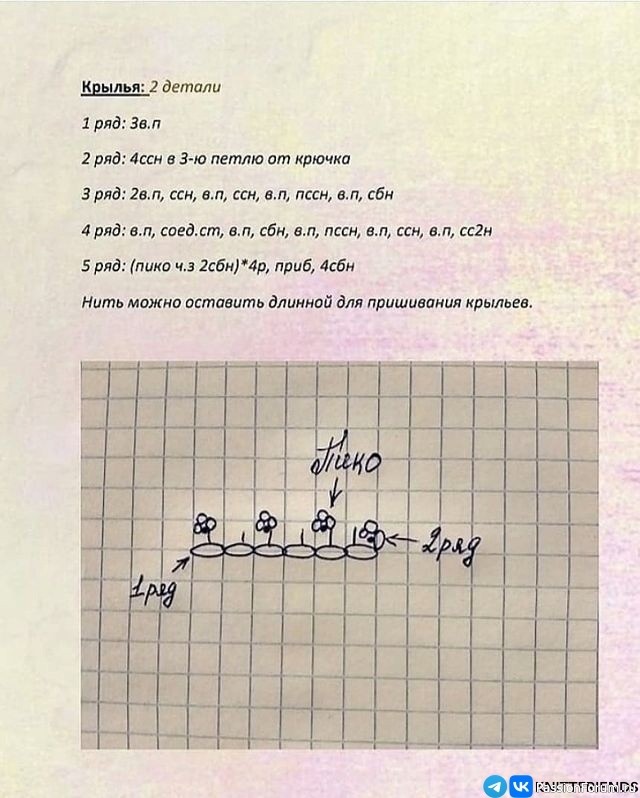 Крылья: 2 детали
1 ряд: 3в.п
2 ряд: 4ссн в 3-ю петлю от крючка
3 ряд: 2в.п, ссн, в.п, ссн, в.п, пссн, в.п, сбн
4 ряд: в.п, соед.ст, в.п, сбн, в.п, пссн, в.п, ссн, в.п, сс2н
5 ряд: (пико ч.з 2сбн)*4р, приб, 4сбн
Нить можно оставить длинной для пришивания крыльев.
Пико
2 ряд
1 ряд
KNITTFRIENDS
Passionforum.ru